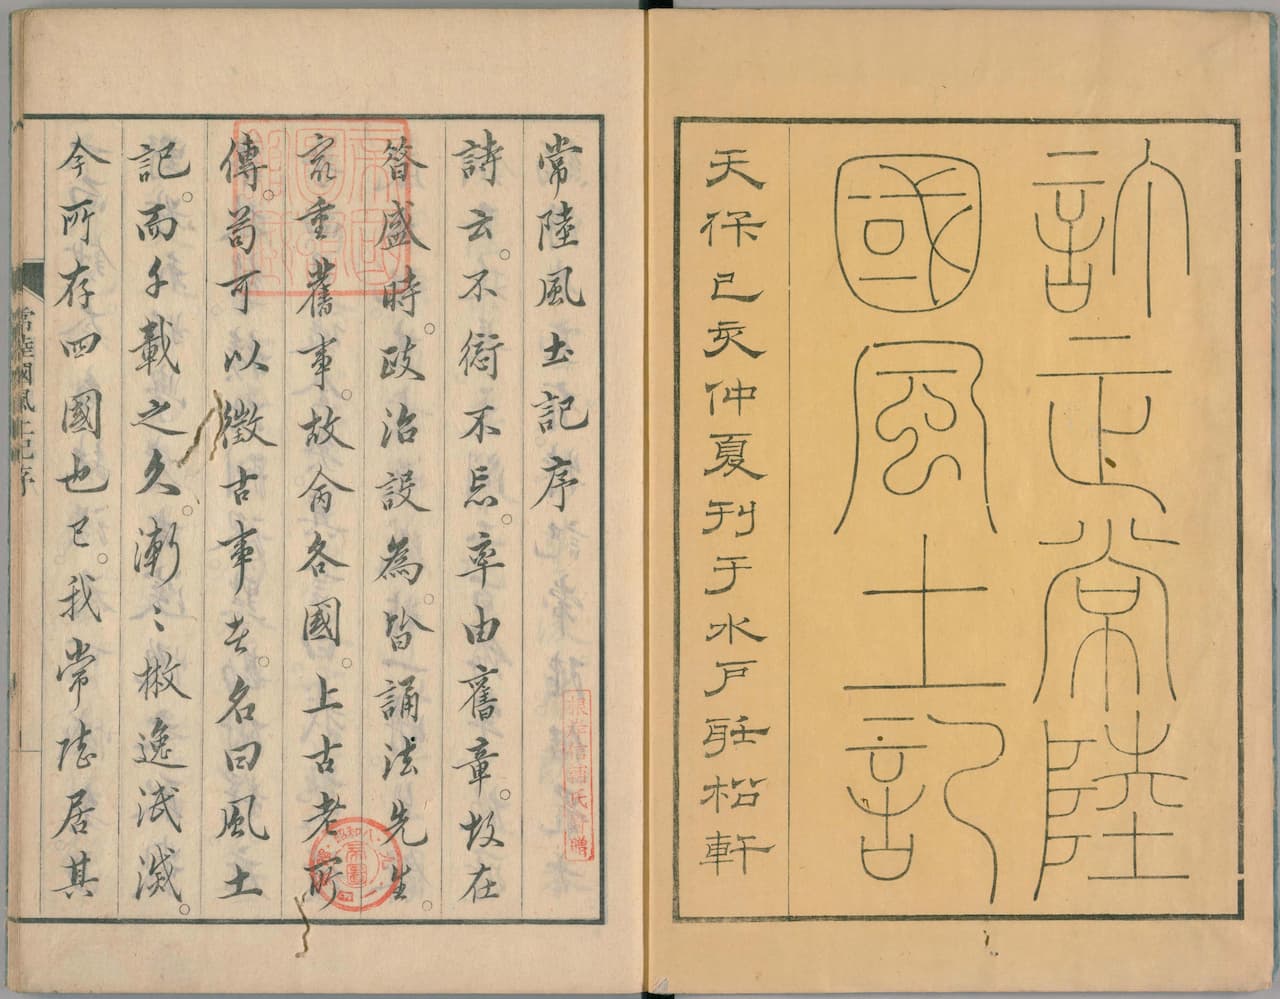 訂正常陸
國風土記
天保己亥仲夏刊于水戸聴松軒
常陸風土記序
詩云。不愆不忘。率由舊章。故在
昔盛時。政治設為。皆誦法先生。
最重舊事。故命各國。上古老所
傳。苟可以徴古事者。名曰風土
記。而千載之久。漸〻散逸泯滅。
今所存四國也已。我常陸居其
常陸國風土記序
根岸信輔氏寄贈